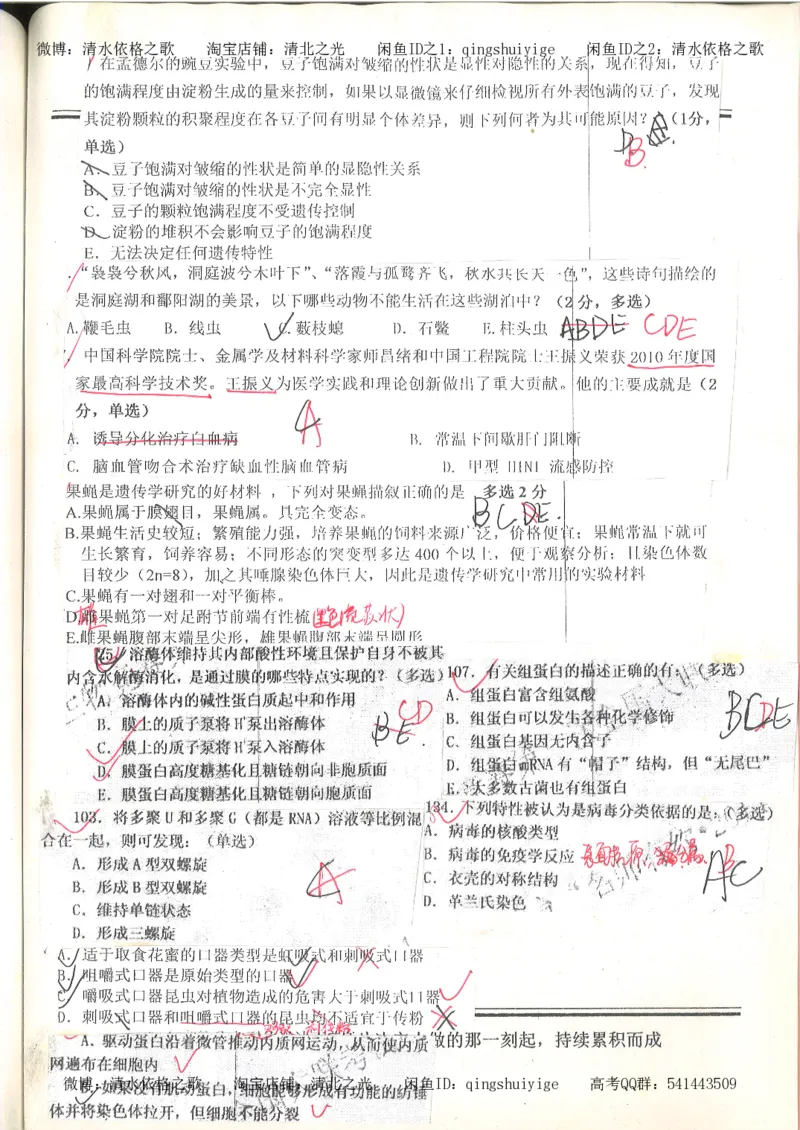 微博：清水依格之歌 淘宝店铺：清北之光 闲鱼ID之1：qingshuiyige 闲鱼ID之2：清水依格之歌
在孟德尔的豌豆实验中，豆子饱满对皱缩的性状是显性对隐性的关系，现在得知，豆子
的饱满程度由淀粉生成的量来控制，如果以显微镜来仔细检视所有外表饱满的豆子，发现
其淀粉颗粒的积聚程度在各豆子间有明显个体差异，则下列何者为其可能原因？（1分，
单选）
B.
A．豆子饱满对皱缩的性状是简单的显隐性关系
B．豆子饱满对皱缩的性状是不完全显性
C．豆子的颗粒饱满程度不受遗传控制
D．淀粉的堆积不会影响豆子的饱满程度
E．无法决定任何遗传特性
．“袅袅兮秋风，洞庭波兮木叶下”、“落霞与孤鹜齐飞，秋水共长天一色”，这些诗句描绘的
是洞庭湖和鄱阳湖的美景，以下哪些动物不能生活在这些湖泊中？（2分，多选）
A.鞭毛虫 B．线虫 C.薮枝螅 D．石鳖 E.柱头虫 ABDE CDE
中国科学院院士、金属学及材料科学家师昌绪和中国工程院院士王振义荣获2010年度国
家最高科学技术奖。王振义为医学实践和理论创新做出了重大贡献。他的主要成就是（2
分，单选） A
A．诱导分化治疗白血病 B．常温下间歇肝门阻断
C．脑血管吻合术治疗缺血性脑血管病 D．甲型H1N1流感防控
果蝇是遗传学研究的好材料 ，下列对果蝇描叙正确的是 多选2分
A.果蝇属于膜翅目，果蝇属。具完全变态。 BCDE.
B.果蝇生活史较短；繁殖能力强，培养果蝇的饲料来源广泛，价格便宜；果蝇常温下就可
生长繁育，饲养容易；不同形态的突变型多达400个以上，便于观察分析；且染色体数
目较少（2n=8），加之其唾腺染色体巨大，因此是遗传学研究中常用的实验材料
C.果蝇有一对翅和一对平衡棒。
D.雌果蝇第一对足跗节前端有性梳 雄
E.雌果蝇腹部末端呈尖形，雄果蝇腹部末端呈圆形
75．溶酶体维持其内部酸性环境且保护自身不被其
内含水解酶消化，是通过膜的哪些特点实现的？（多选）
A．溶酶体内的碱性蛋白质起中和作用
B．膜上的质子泵将H⁺泵出溶酶体
C．膜上的质子泵将H⁺泵入溶酶体
D．膜蛋白高度糖基化且糖链朝向非胞质面
E．膜蛋白高度糖基化且糖链朝向胞质面
BE. CD
103．将多聚U和多聚G（都是RNA）溶液等比例混
合在一起，则可发现：（单选）
A．形成A型双螺旋
B．形成B型双螺旋
C．维持单链状态
D．形成三螺旋
A
107．有关组蛋白的描述正确的有：（多选）
A．组蛋白富含组氨酸
B．组蛋白可以发生各种化学修饰
C．组蛋白基因无内含子
D．组蛋白mRNA有“帽子”结构，但“无尾巴”
E．大多数古菌也有组蛋白
BCDE
134．下列特性被认为是病毒分类依据的是：（多选）
A．病毒的核酸类型
B．病毒的免疫学反应
C．衣壳的对称结构
D．革兰氏染色
AC B
A．适于取食花蜜的口器类型是虹吸式和刺吸式口器
B．咀嚼式口器是原始类型的口器
C．嚼吸式口器昆虫对植物造成的危害大于刺吸式口器
D．刺吸式口器和咀嚼式口器的昆虫均不适宜于传粉
A．驱动蛋白沿着微管推动内质网运动，从而使内质
网遍布在细胞内
做的那一刻起，持续累积而成
如果没有肌动蛋白，细胞能够形成有功能的纺锤
体并将染色体拉开，但细胞不能分裂
微博：清水依格之歌 淘宝店铺：清北之光 闲鱼ID：qingshuiyige 高考QQ群：541443509